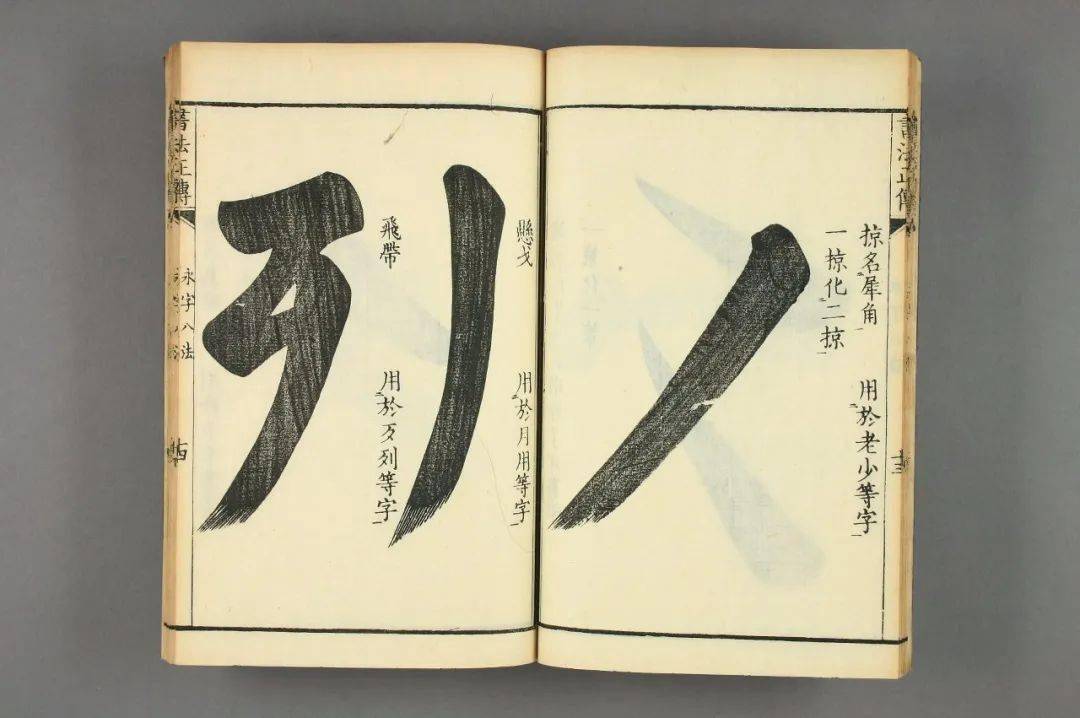 書法正傳
十三
掠名犀角
用於老少等字
一掠化二掠
懸戈
用於月用等字
飛帶
用於歹列等字
書法正傳
永字八法
十四